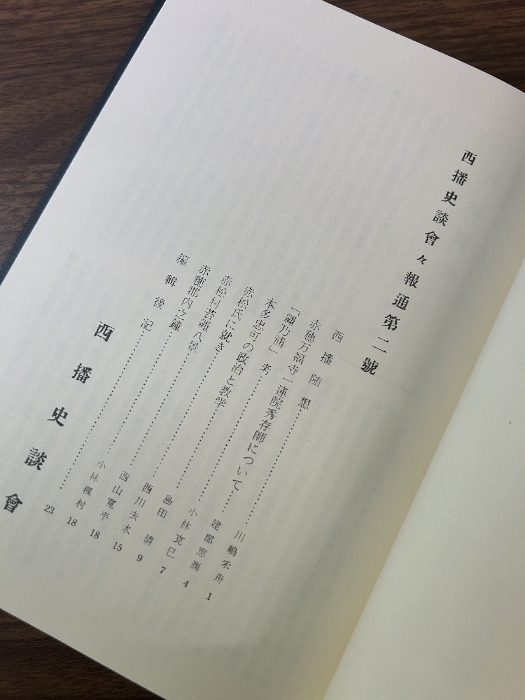 西播史談會々報通第二號
西播随想 川嶋禾舟 1
赤穂万福寺一蓮院秀存師について 建部恵潤 4
乃浦」考 小林克巳 7
本多忠可の政治と教学 島田清 9
赤松氏に就き 西川玄水 15
赤松村雲霜八景 西山寛平 18
赤穂郡内之鐘 小林楓村 18
編輯後記 23
西播史談會